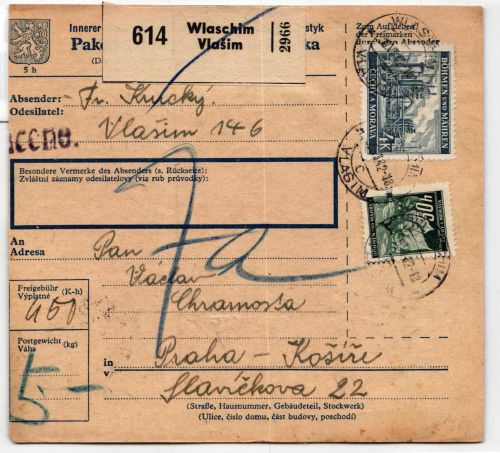 5 h
Innerer
styk
Pake
ka
614
Wlaschim
Vlašim
2966
Zum Aufkleben
der Freimarken
durch den Absender
Absender:
Odesilatel:
Vlašim 146
Besondere Vermerke des Absenders (s. Rückseite):
Zvláštní záznamy odesilatelovy (viz rub průvodky):
BÖHMEN UND MÄHREN
ČECHY A MORAVA
4K
40
An
Adresa
Pan
Václav
Chramosta
Freigebühr (K-h)
Výplatné
450
Postgewicht (kg)
Váha
5-
in
v
Praha - Košíře
Slavíčkova 22
(Straße, Hausnummer, Gebäudeteil, Stockwerk)
(Ulice, číslo domu, část budovy, poschodí)